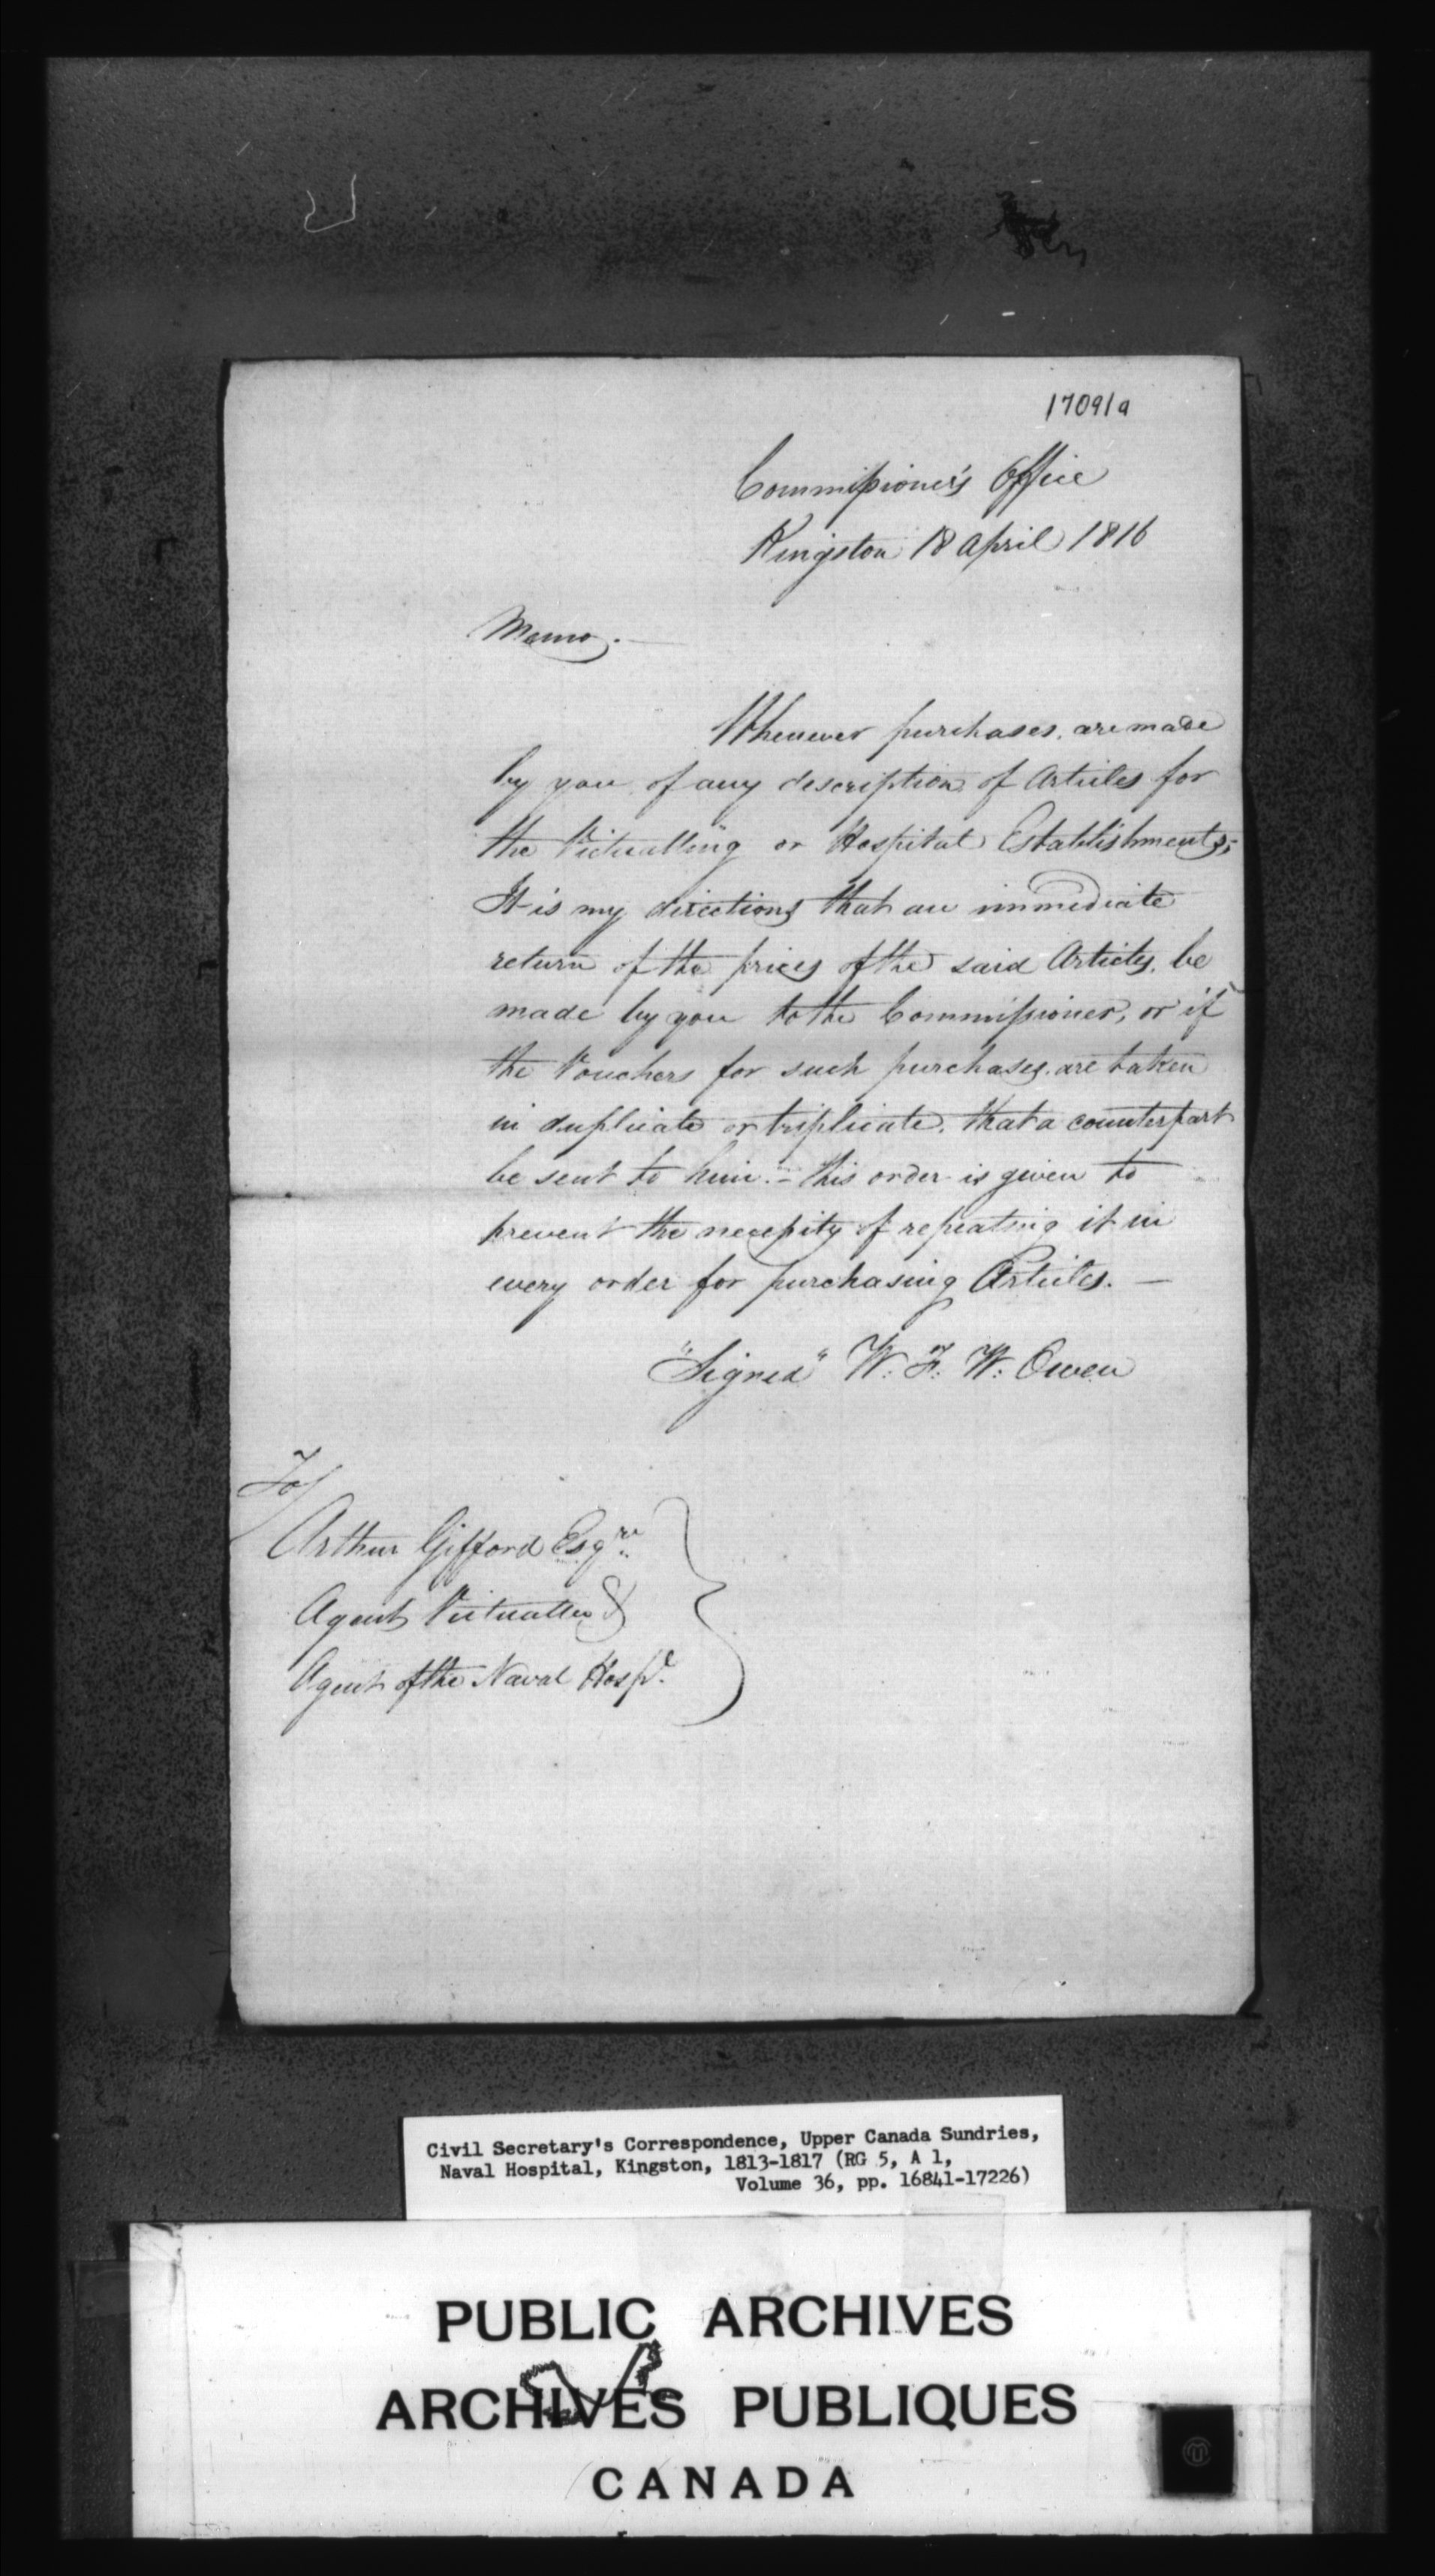 17091a
Commissioner's Office
Kingston 18 April 1816
Memo.
Whenever purchases are made
by you of any description of Articles for
the Victualling or Hospital Establishments;
It is my directions that an immediate
return of the prices of the said Articles, be
made by you to the Commissioner, or if
the Vouchers for such purchases are taken
in duplicate or triplicate, that a counterpart
be sent to him. - this order is given to
prevent the necessity of repeating it in
every order for purchasing Articles. —
"Signed" W. F. W. Owen
To/
Arthur Gifford Esqre.
Agent Victualler &
Agent of the Naval Hospl.
Civil Secretary's Correspondence, Upper Canada Sundries,
Naval Hospital, Kingston, 1813-1817 (RG 5, A 1,
Volume 36, pp. 16841-17226)
PUBLIC ARCHIVES
ARCHIVES PUBLIQUES
CANADA